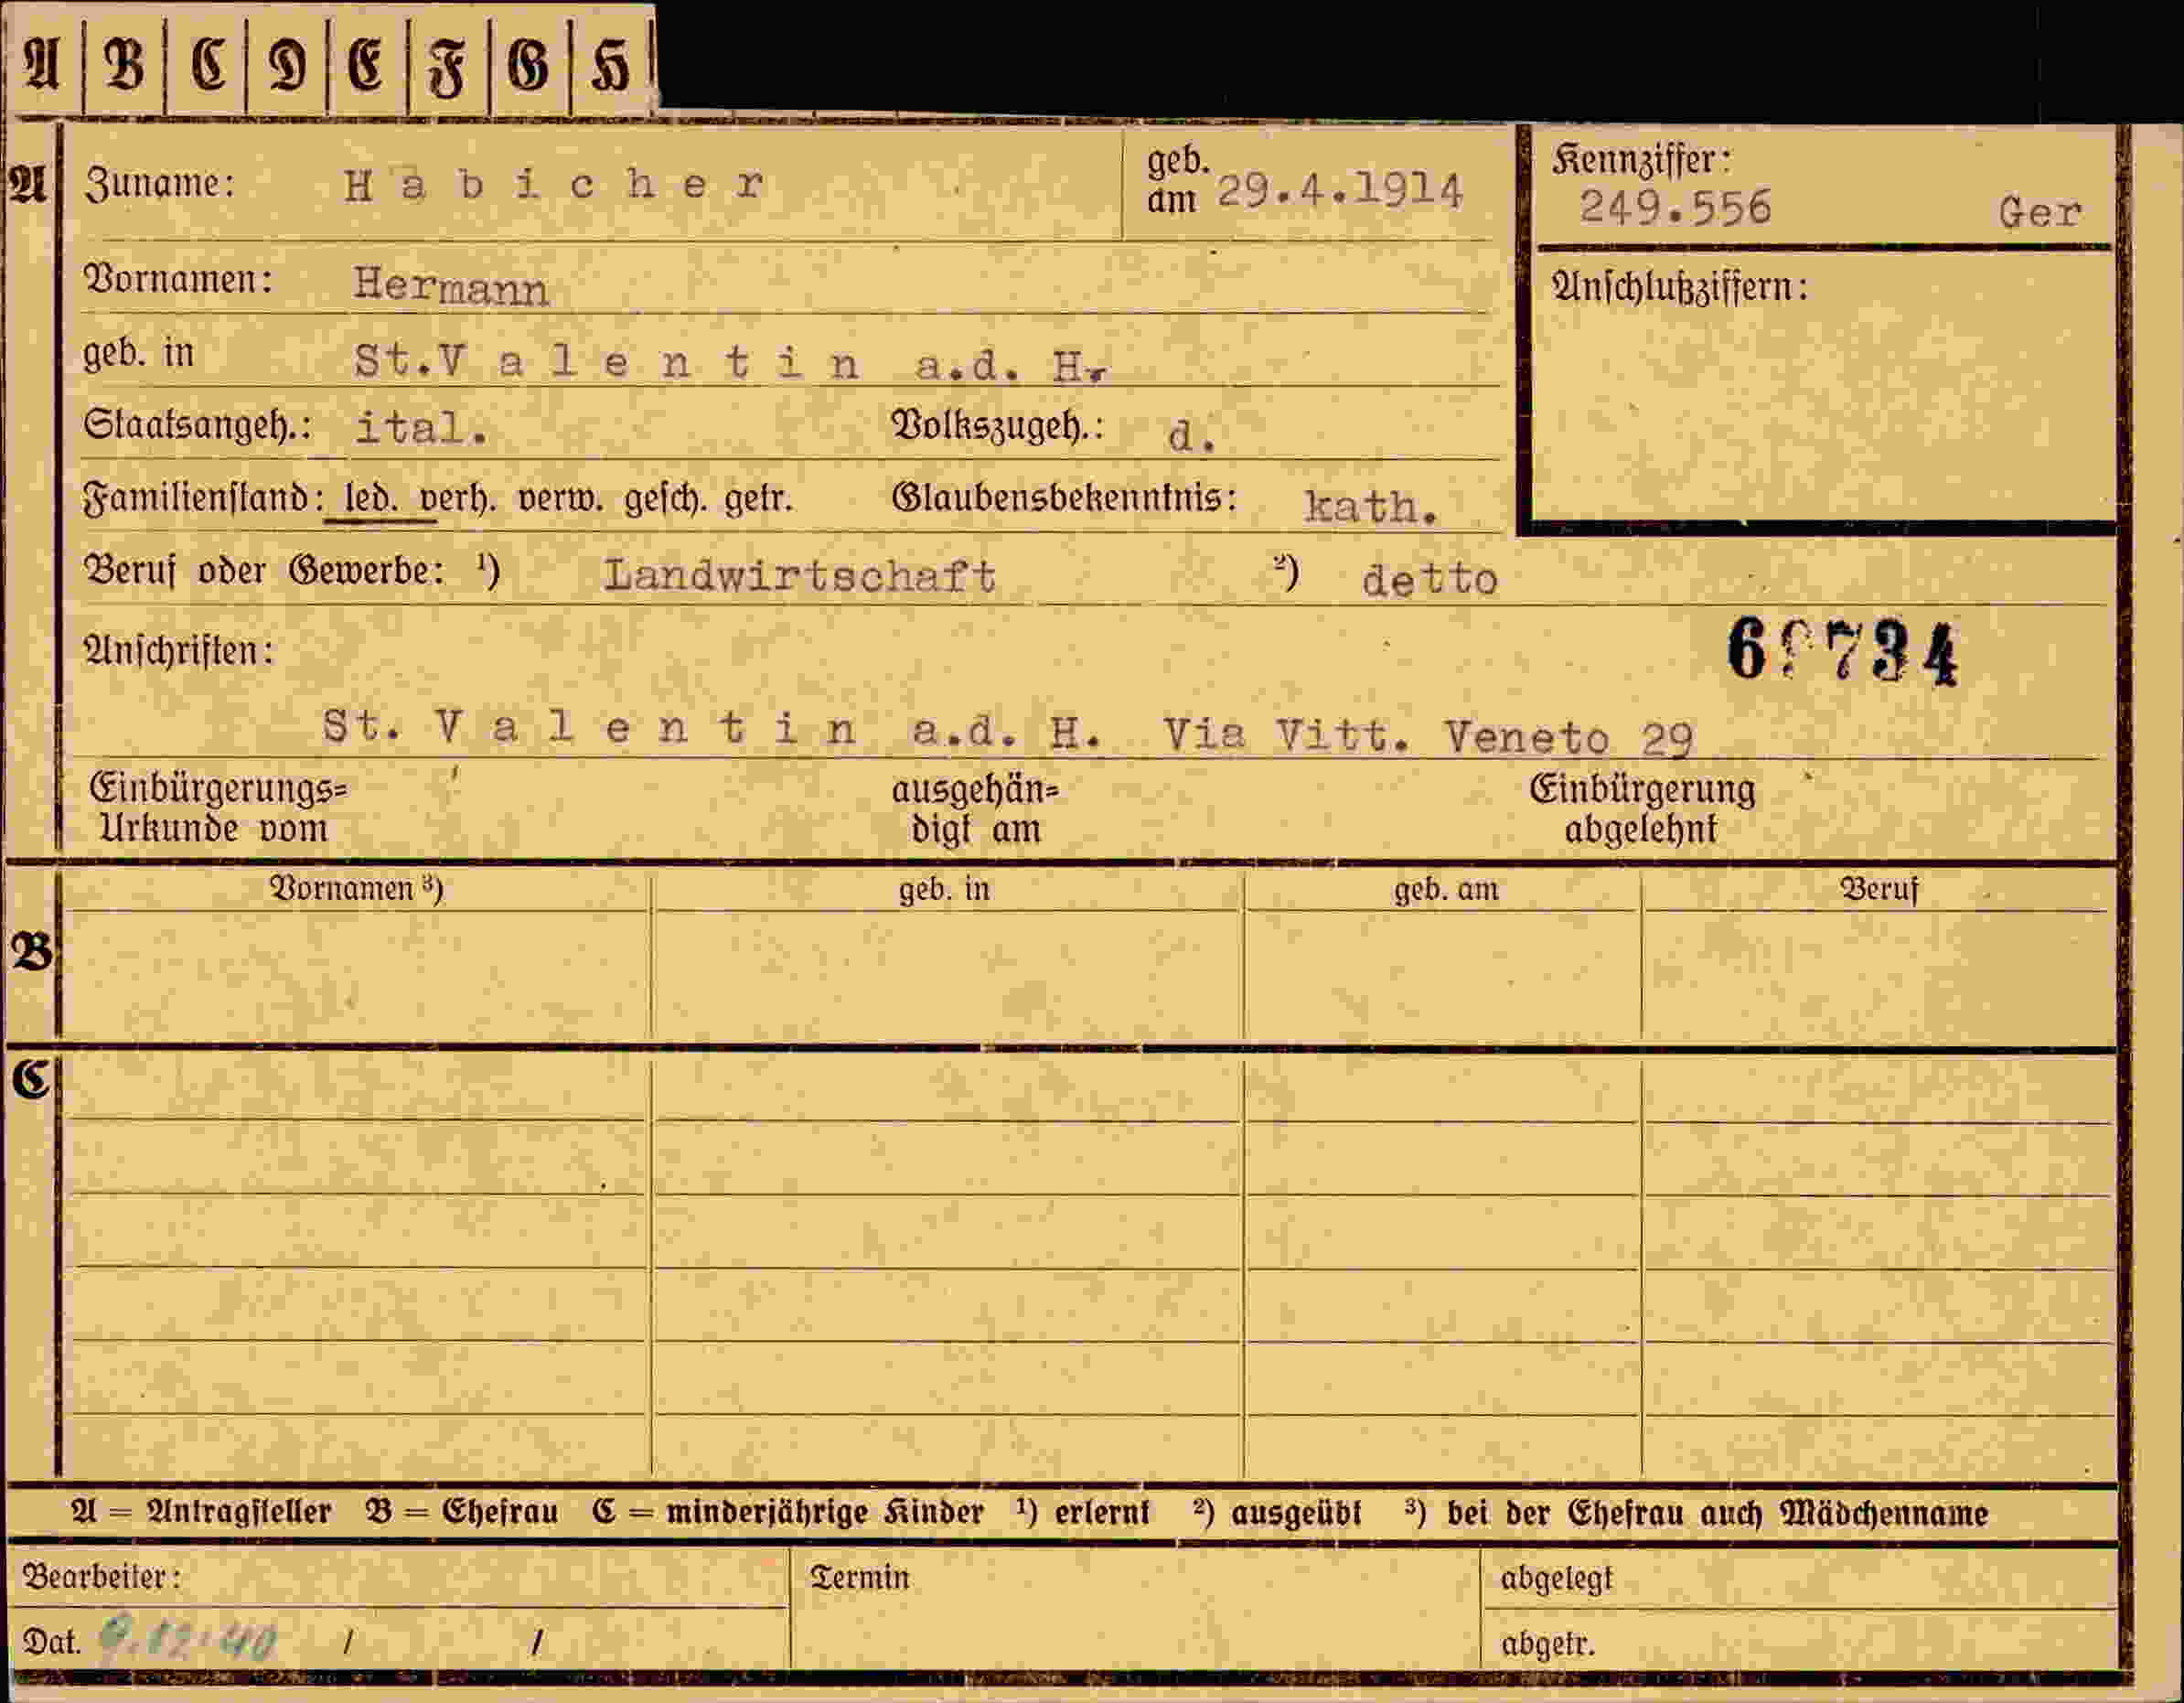 A B C D E F G H
A Zuname: Habicher geb. am 29.4.1914 Kennziffer: 249.556 Ger
Vornamen: Hermann Anschlußziffern:
geb. in St.Valentin a.d. H.
Staatsangeh.: ital. Volkszugeh.: d.
Familienstand: led. verh. verw. gesch. getr. Glaubensbekenntnis: kath.
Beruf oder Gewerbe: ¹) Landwirtschaft ²) detto
Anschriften:
St. Valentin a.d. H. Via Vitt. Veneto 29
Einbürgerungs= ausgehän= Einbürgerung
Urkunde vom digt am abgelehnt
Vornamen ³) geb. in geb. am Beruf
B
C
A = Antragsteller B = Ehefrau C = minderjährige Kinder ¹) erlernt ²) ausgeübt ³) bei der Ehefrau auch Mädchenname
Bearbeiter: Termin abgelegt
Dat. 9.12.40 / / abgetr.